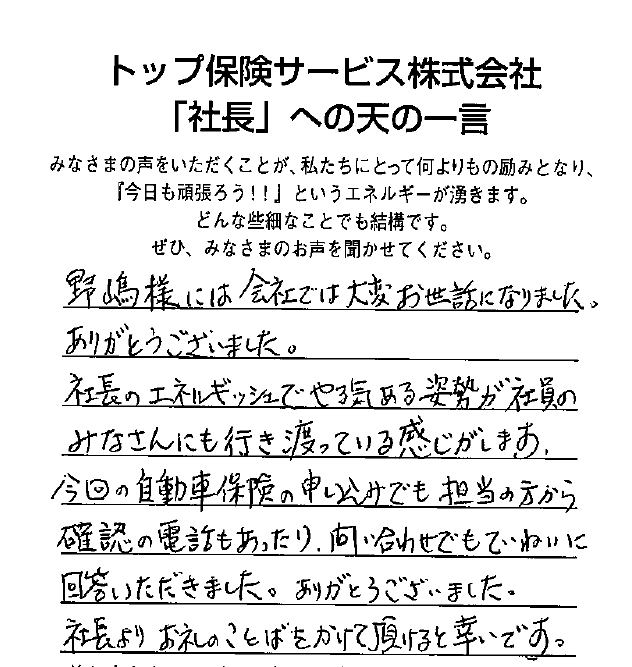 トップ保険サービス株式会社
「社長」への天の一言
みなさまの声をいただくことが、私たちにとって何よりもの励みとなり、
『今日も頑張ろう！！』というエネルギーが湧きます。
どんな些細なことでも結構です。
ぜひ、みなさまのお声を聞かせてください。
野嶋様には会社では大変お世話になりました。
ありがとうございました。
社長のエネルギッシュでやる気ある姿勢が社員の
みなさんにも行き渡っている感じがします。
今回の自動車保険の申し込みでも担当の方から
確認の電話もあったり、問い合わせでもていねいに
回答いただきました。ありがとうございました。
社長よりお礼のことばをかけて頂けると幸いです。